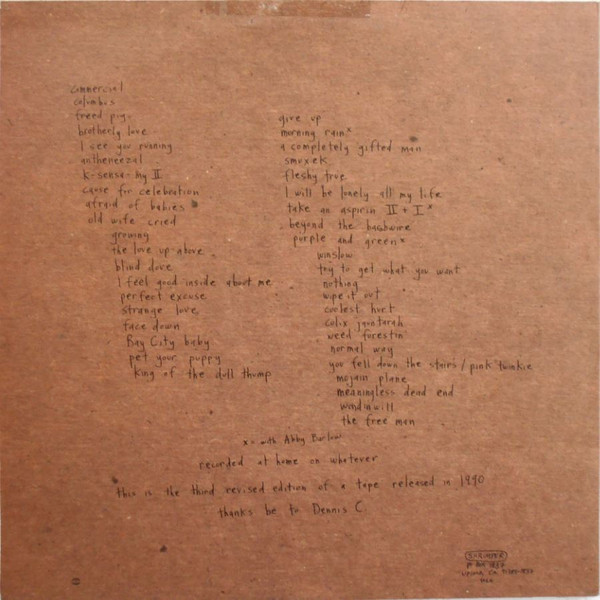 commercial
columbus
freed pig
brotherly love
I see you running
antheneezal
k-sensa-my II
cause for celebration
afraid of babies
old wife cried
growing
the love up above
blind dove
I feel good inside about me
perfect excuse
strange love
face down
Bay City baby
pet your puppy
king of the dull thump
give up
morning rain x
a completely gifted man
smoxek
fleshy true
I will be lonely all my life
take an aspirin II + I x
beyond the
purple and green x
winslow
try to get what you want
nothing
wipe it out
coolest hurt
colix
weed forestin'
normal way
you fell down the stairs / pink twinkie
mojain plane
meaningless dead end
windinwill
the free man
x = with Abby Barlow
recorded at home on whatever
this is the third revised edition of a tape released in 1990
thanks be to Dennis C.
SHRIMPER
PO Box 1837
Upland, CA 91785-1837
USA